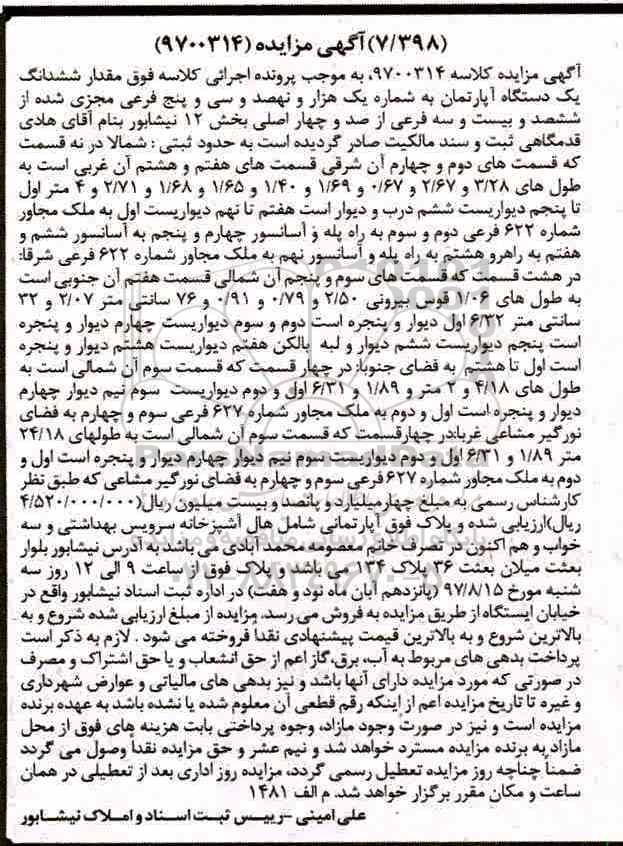 (۷/۳۹۸)آگهی مزایده (۹۷۰۰۳۱۴)
آگهی مزایده کلاسه ۹۷۰۰۳۱۴، به موجب پرونده اجرائی کلاسه فوق مقدار ششدانگ
یک دستگاه آپارتمان به شماره یک هزار و نهصد و سی و پنج فرعی مجزی شده از
ششصد و بیست و سه فرعی از صد و چهار اصلی بخش ۱۲ نیشابور بنام آقای هادی
قدمگاهی ثبت و سند مالکیت صادر گردیده است به حدود ثبتی : شمالا در نه قسمت
که قسمت های دوم و چهارم آن شرقی قسمت های هفتم و هشتم آن غربی است به
طول های ۳/۲۸ و ۲/۶۷ و ۰/۶۷ و ۱/۶۹ و ۱/۴۰ و ۱/۶۵ و ۱/۶۸ و ۲/۷۱ و ۴ متر اول
تا پنجم دیواریست ششم درب و دیوار است هفتم تا نهم دیواریست اول به ملک مجاور
شماره ۶۲۲ فرعی دوم و سوم به راه پله و آسانسور چهارم و پنجم به آسانسور ششم و
هفتم به راهرو هشتم به راه پله و آسانسور نهم به ملک مجاور شماره ۶۲۲ فرعی شرقا:
در هشت قسمت که قسمت های سوم و پنجم آن شمالی قسمت هفتم آن جنوبی است
به طول های ۱/۰۶ قوس بیرونی ۲/۵۰ و ۰/۷۹ و ۰/۹۱ و ۷۶ سانتی متر ۲/۰۷ و ۳۲
سانتی متر ۶/۳۲ اول دیوار و پنجره است دوم و سوم دیواریست چهارم دیوار و پنجره
است پنجم دیواریست ششم دیوار و لبه بالکن هفتم دیواریست هشتم دیوار و پنجره
است اول تا هشتم به فضای جنوبا: در چهار قسمت که قسمت سوم آن شمالی است به
طول های ۴/۱۸ و ۲ متر و ۱/۸۹ و ۶/۳۱ اول و دوم دیواریست سوم نیم دیوار چهارم
دیوار و پنجره است اول و دوم به ملک مجاور شماره ۶۲۷ فرعی سوم و چهارم به فضای
نورگیر مشاعی غربا:در چهارقسمت که قسمت سوم آن شمالی است به طولهای ۲۴/۱۸
متر ۱/۸۹ و ۶/۳۱ اول و دوم دیواریست سوم نیم دیوار چهارم دیوار و پنجره است اول و
دوم به ملک مجاور شماره ۶۲۷ فرعی سوم و چهارم به فضای نورگیر مشاعی که طبق نظر
کارشناس رسمی به مبلغ چهارمیلیارد و پانصد و بیست میلیون ریال(۴/۵۲۰/۰۰۰/۰۰۰
ریال)ارزیابی شده و پلاک فوق آپارتمانی شامل هال آشپزخانه سرویس بهداشتی و سه
خواب و هم اکنون در تصرف خانم معصومه محمد آبادی می باشد به آدرس نیشابور بلوار
بعثت میلان بعثت ۳۶ پلاک ۱۳۴ می باشد. پلاک فوق از ساعت ۹ الی ۱۲ روز سه
شنبه مورخ ۹۷/۸/۱۵ (پانزدهم آبان ماه نود و هفت) در اداره ثبت اسناد نیشابور واقع در
خیابان ایستگاه از طریق مزایده به فروش می رسد. مزایده از مبلغ ارزیابی شده شروع و به
بالاترین شروع و به بالاترین قیمت پیشنهادی نقدا فروخته می شود . لازم به ذکر است
پرداخت بدهی های مربوط به آب، برق،گاز اعم از حق انشعاب و یا حق اشتراک و مصرف
در صورتی که مورد مزایده دارای آنها باشد و نیز بدهی های مالیاتی و عوارض شهرداری
و غیره تا تاریخ مزایده اعم از اینکه رقم قطعی آن معلوم شده یا نشده باشد به عهده برنده
مزایده است و نیز در صورت وجود مازاد، وجوه پرداختی بابت هزینه های فوق از محل
مازاد به برنده مزایده مسترد خواهد شد و نیم عشر و حق مزایده نقداً وصول می گردد
ضمناً چناچه روز مزایده تعطیل رسمی گردد، مزایده روز اداری بعد از تعطیلی در همان
ساعت و مکان مقرر برگزار خواهد شد. م الف ۱۴۸۱
علی امینی -رییس ثبت اسناد و املاک نیشابور